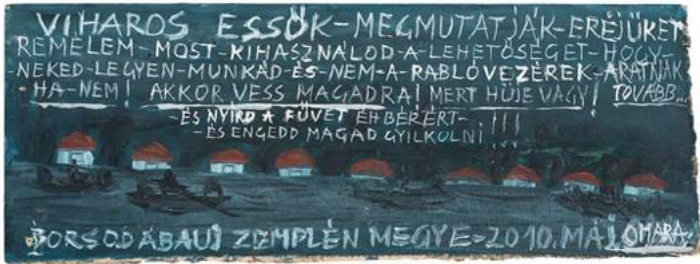 VIHAROS ESSŐK-MEGMUTATJÁK-EREJÜKET
REMÉLEM-MOST-KIHASZNÁLOD-A-LEHETŐSÉGET-HOGY-
-NEKED-LEGYEN-MUNKÁD-ÉS-NEM-A-RABLÓVEZÉREK-ARATNAK
HA-NEM! AKKOR VESS MAGADRA! MERT HÜJE VAGY! TOVÁBB...
-ÉS NYÍRD A FÜVET ÉHBÉRÉRT-
-ÉS ENGEDD MAGAD GYILKOLNI!!!
BORSOD ABAUJ ZEMPLÉN MEGYE-2010. MÁJ. OMARA